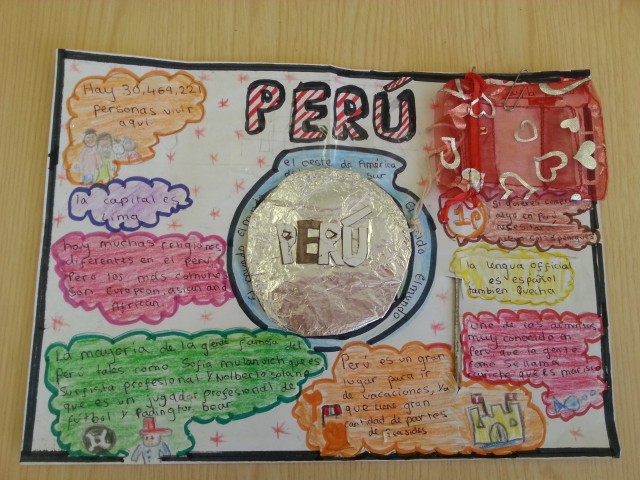 PERÚ
Hay 30,469,221
personas vivir
aqui
la capital es
Lima
hay muchas religiones
diferentes en el peru,
Pero las mas comunes
Son European, asian and
African.
La mayoría de la gente famosa del
Peru tales como Sofia mulanvich que es
Surfista profesional y Nolberto solano
que es un jugador profesional de
futbol y Padington bear
el oeste de América
Sur
El mundo
El mundo
PERÚ
Si quieres comer
algo en Peru
necesitas
la lengua official
es español
tambien Quecha
Uno de los alimentos
muy conocido en
Perú que la gente
que es marisco
Perú es un gran
lugar para ir
de vacaciones, ya
que tiene gran
cantidad de partes
de seasides